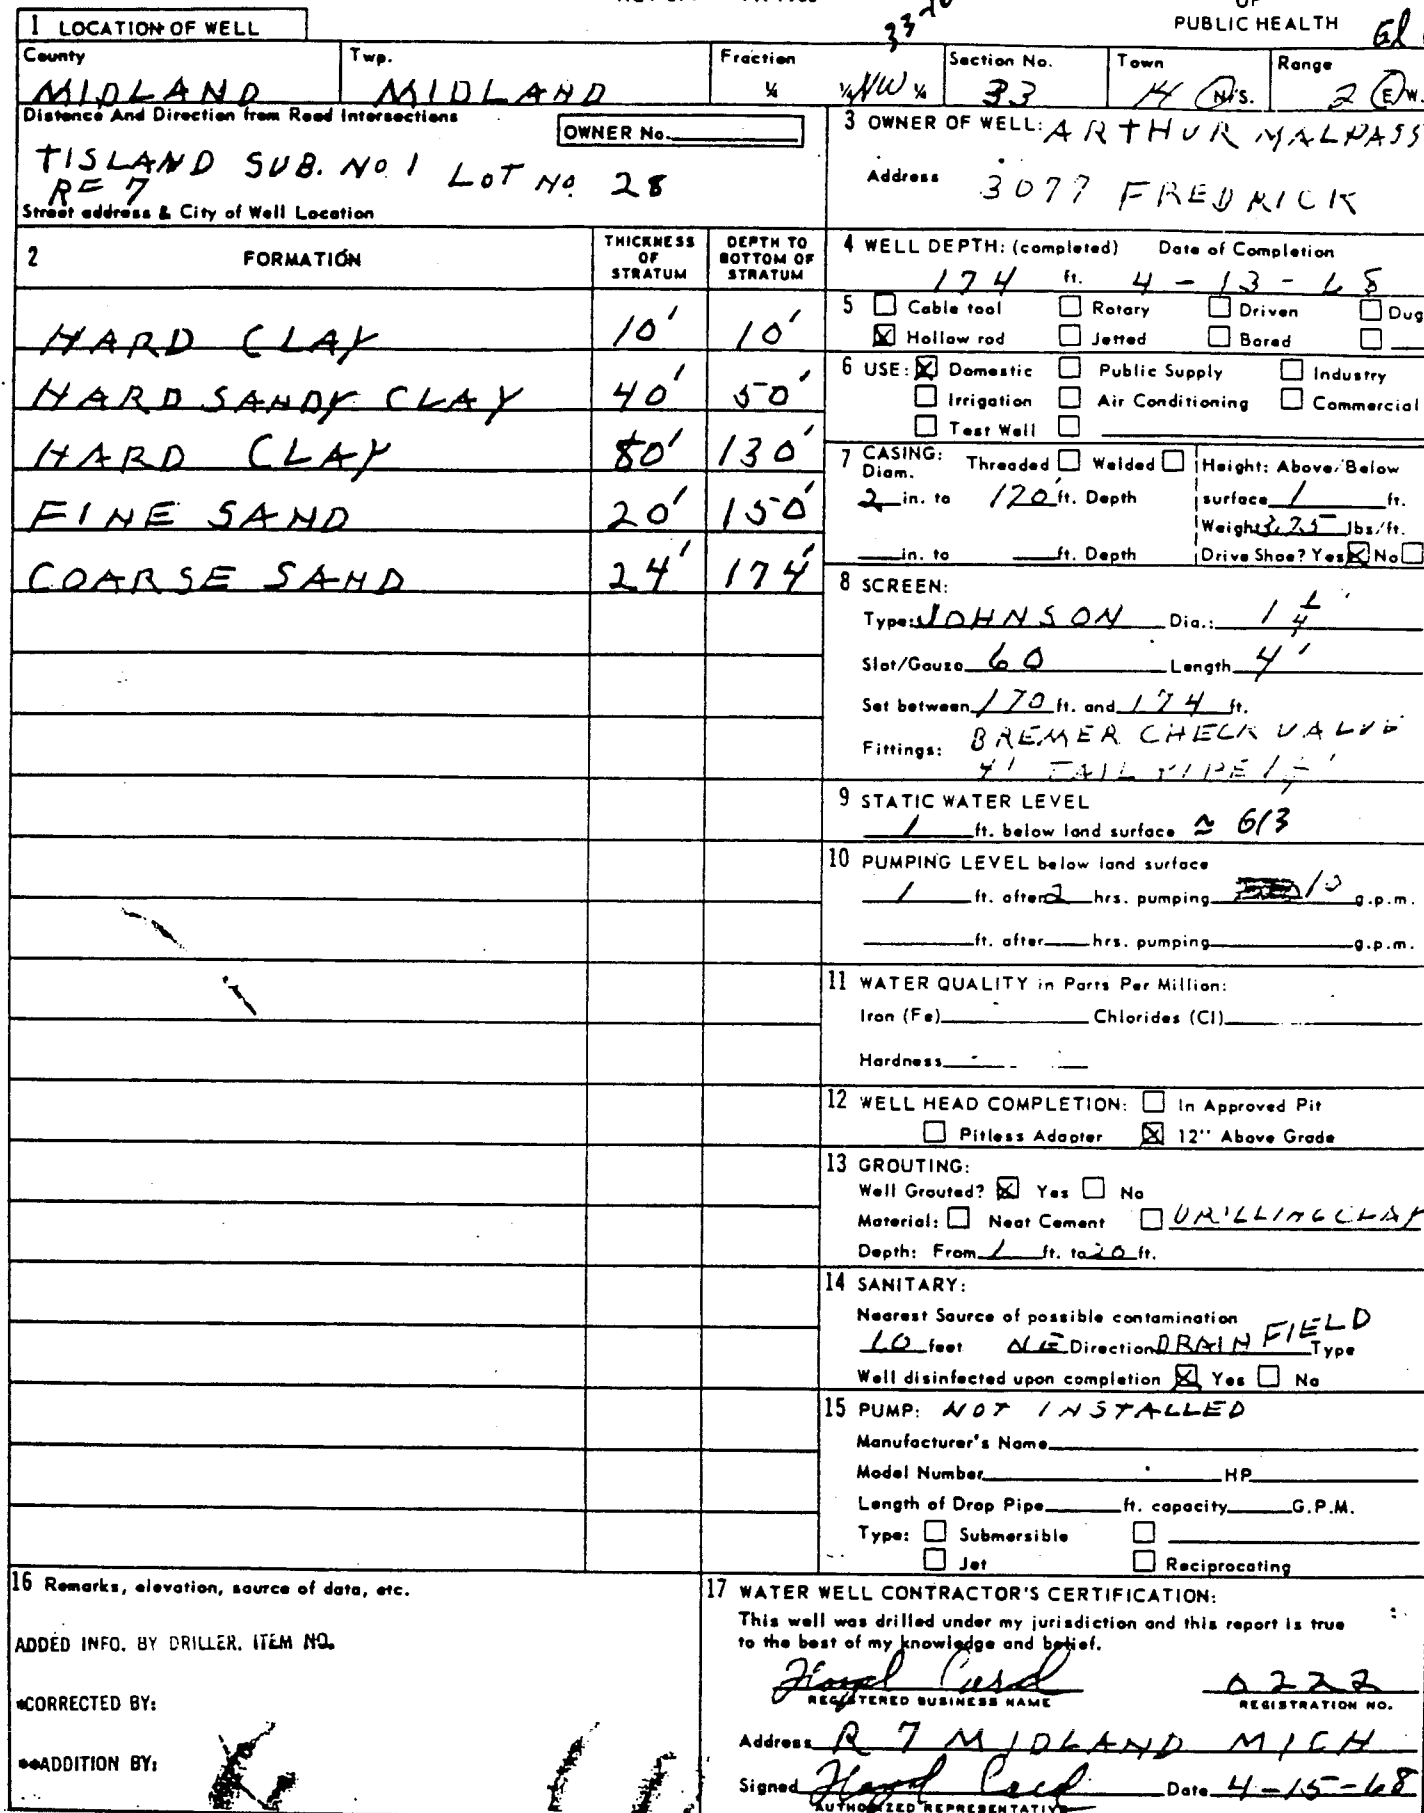 PUBLIC HEALTH
1 LOCATION OF WELL
County Twp. Fraction Section No. Town Range
MIDLAND MIDLAND ¼ ¼ NW ¼ 33 14 N/S. 2 E/W.
Distance And Direction from Road Intersections
OWNER No.
TISLAND SUB. No 1 LOT No 28
RE 7
Street address & City of Well Location
3 OWNER OF WELL: ARTHUR MALPASS
Address 3077 FREDRICK
2 FORMATION THICKNESS OF STRATUM DEPTH TO BOTTOM OF STRATUM
HARD CLAY 10' 10'
HARD SANDY CLAY 40' 50'
HARD CLAY 80' 130'
FINE SAND 20' 150'
COARSE SAND 24' 174'
4 WELL DEPTH: (completed) Date of Completion
174 ft. 4-13-68
5 Cable tool Rotary Driven Dug
Hollow rod Jetted Bored
6 USE: Domestic Public Supply Industry
Irrigation Air Conditioning Commercial
Test Well
7 CASING: Threaded Welded Height: Above/Below
Diam.
2 in. to 120' ft. Depth surface 1 ft.
Weight 3.75 lbs/ft.
in. to ft. Depth Drive Shoe? Yes No
8 SCREEN:
Type: JOHNSON Dia.: 1 1/4"
Slot/Gauze 60 Length 4'
Set between 170 ft. and 174 ft.
Fittings: BREMER CHECK VALVE
4' TAIL PIPE
9 STATIC WATER LEVEL
1 ft. below land surface ≈ 613
10 PUMPING LEVEL below land surface
1 ft. after 2 hrs. pumping 10 g.p.m.
ft. after hrs. pumping g.p.m.
11 WATER QUALITY in Parts Per Million:
Iron (Fe) Chlorides (Cl)
Hardness
12 WELL HEAD COMPLETION: In Approved Pit
Pitless Adapter 12" Above Grade
13 GROUTING:
Well Grouted? Yes No
Material: Neat Cement DRILLING CLAY
Depth: From 1 ft. to 20 ft.
14 SANITARY:
Nearest Source of possible contamination
10 feet NE Direction DRAIN FIELD Type
Well disinfected upon completion Yes No
15 PUMP: NOT INSTALLED
Manufacturer's Name
Model Number HP
Length of Drop Pipe ft. capacity G.P.M.
Type: Submersible
Jet Reciprocating
16 Remarks, elevation, source of data, etc.
ADDED INFO. BY DRILLER, ITEM NO.
*CORRECTED BY:
**ADDITION BY:
17 WATER WELL CONTRACTOR'S CERTIFICATION:
This well was drilled under my jurisdiction and this report is true
to the best of my knowledge and belief.
Floyd 0222
REGISTERED BUSINESS NAME REGISTRATION NO.
Address R 7 MIDLAND MICH
Signed Floyd Date 4-15-68
AUTHORIZED REPRESENTATIVE